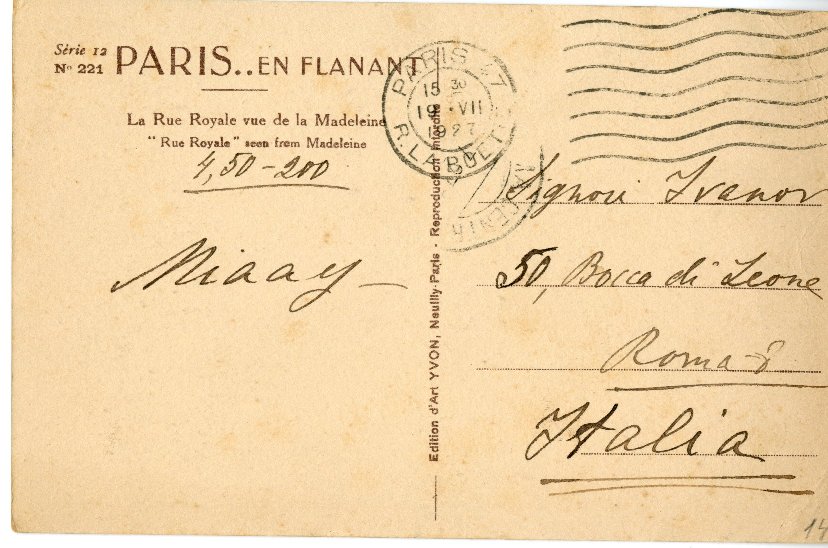 Série 12
Nº 221
PARIS..EN FLANANT
La Rue Royale vue de la Madeleine
" Rue Royale " seen from Madeleine
4,50-200
Miaay
PARIS 47
15 30
19 VII
1927
R. LA BOETI
CENTR
Edition d'Art YVON, Neuilly-Paris - Reproduction interdite
Signori Ivanov
50, Bocca di Leone
Roma-8
Italia
14